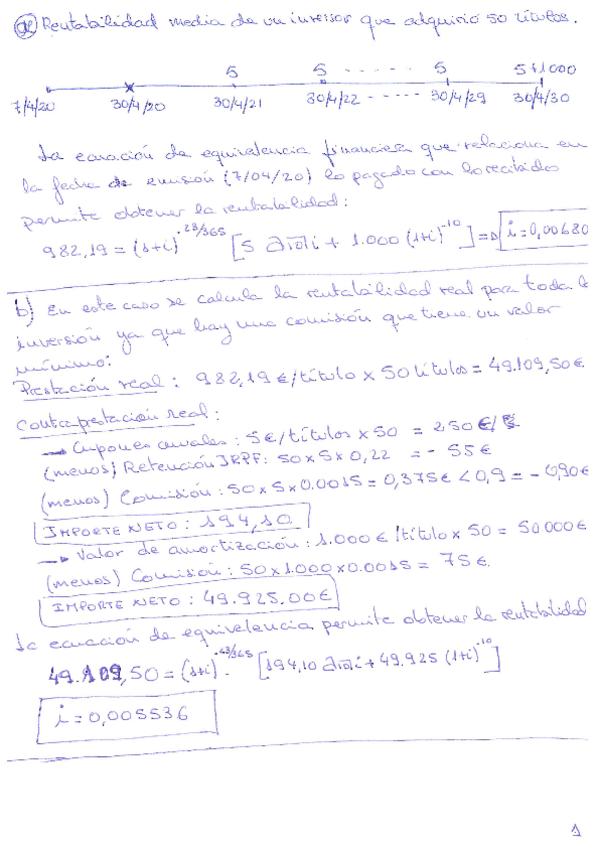 a) Rentabilidad media de un inversor que adquirió 50 títulos.
5 5 ----- 5 5+1000
7/4/20 30/4/20 30/4/21 30/4/22 ----- 30/4/29 30/4/30
La ecuación de equivalencia financiera que relaciona en
la fecha de emisión (7/04/20) lo pagado con lo recibido
permite obtener la rentabilidad:
982,19 = (1+i)^-23/365 [5 a10⌉i + 1.000 (1+i)^-10] => i=0,00680
b) En este caso se calcula la rentabilidad real para toda la
inversión ya que hay una comisión que tiene un valor
mínimo:
Prestación real: 982,19€/título x 50 títulos = 49.109,50€
Contraprestación real:
→ Cupones anuales: 5€/títulos x 50 = 250€
(menos) Retención IRPF: 50x5x0,22 = - 55€
(menos) Comisión: 50x5x0.0015 = 0,375€ < 0,9 = - 0,90€
IMPORTE NETO: 194,10
→ Valor de amortización: 1.000€/título x 50 = 50000€
(menos) Comisión: 50x1.000x0.0015 = 75€.
IMPORTE NETO: 49.925.00€
La ecuación de equivalencia permite obtener la rentabilidad
49.109,50 = (1+i)^-23/365 · [194,10 a10⌉i + 49.925 (1+i)^-10]
i = 0,005536
1